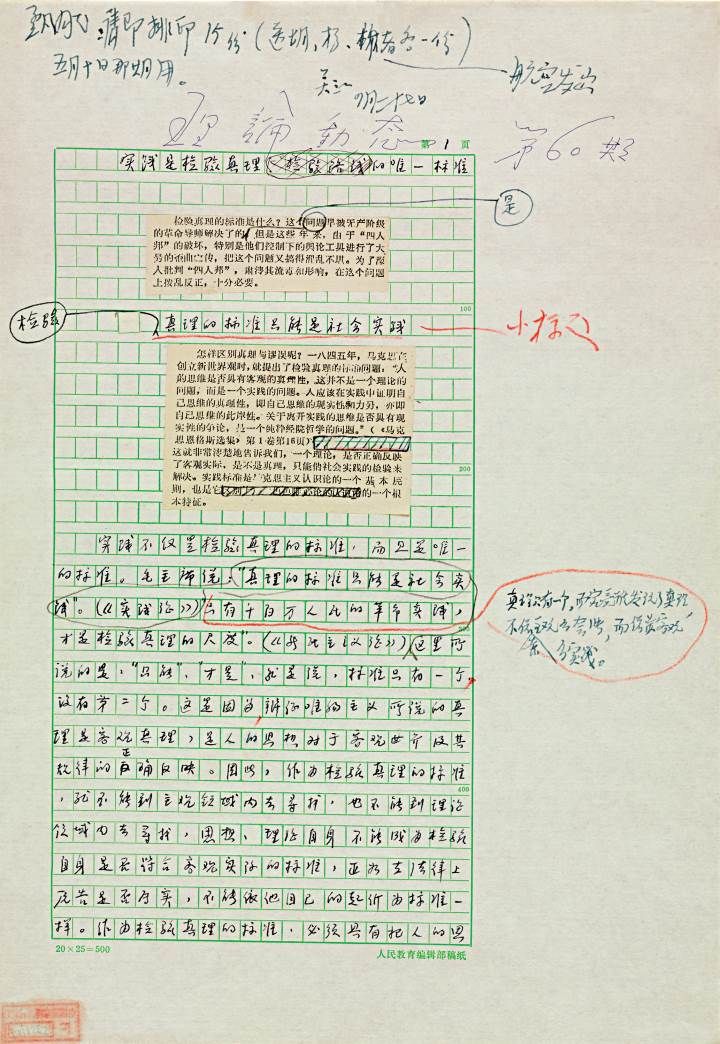 请即排印15份(送胡、杨、
五月十日那期用。
航空发出
吴江
月二十七日
理論動态
第60期
第1页
实践是检验真理的唯一标准
是
检验真理的标准是什么?这个问题早被无产阶级
的革命导师解决了的。但是这些年来,由于“四人
邦”的破坏,特别是他们控制下的舆论工具进行了大
另的歪曲宣传,把这个问题又搞得混乱不堪。为了深
入批判“四人邦”,肃清其流毒和影响,在这个问题
上拨乱反正,十分必要。
100
检验
真理的标准只能是社会实践
小标题
怎样区别真理与谬误呢?一八四五年,马克思在
创立新世界观时,就提出了检验真理的标准问题:“人
的思维是否具有客观的真理性,这并不是一个理论的
问题,而是一个实践的问题。人应该在实践中证明自
己思维的真理性,即自己思维的现实性和力另,亦即
自己思维的此岸性。关于离开实践的思维是否具有现
实性的争论,是一个纯粹经院哲学的问题。”(《马克
思恩格斯选集》第1卷第16页)
这就非常清楚地告诉我们,一个理论,是否正确反映
了客观实际,是不是真理,只能借社会实践的检验来
解决。实践标准是马克思主义认识论的一个基本原
则,也是它的一个根
本特征。
200
实践不仅是检验真理的标准,而且是唯一
的标准。毛主席说:“真理的标准只能是社会实
践”。(《实践论》)“只有千百万人民的革命实践,
300
才是检验真理的尺度”。(《新民主主义论》)这里所
说的是:“只能”、“才是”,就是说,标准只有一个,
没有第二个。这是因为,辩证唯物主义所说的真
理是客观真理,是人的思想对于客观世界及其
规律的正确反映。因此,作为检验真理的标准
400
,就不能到主观领域内去寻找,也不能到理论
领域内去寻找,思想、理论自身不能成为检验
自身是否符合客观实际的标准,正如在法律上
原告是否属实,不能依他自己的起诉为标准一
样。作为检验真理的标准,必须具有把人的思
真理只有一个,而究竟谁发现了真理
不依主观的夸张,而依靠客观
实践。
20×25=500
人民教育编辑部稿纸